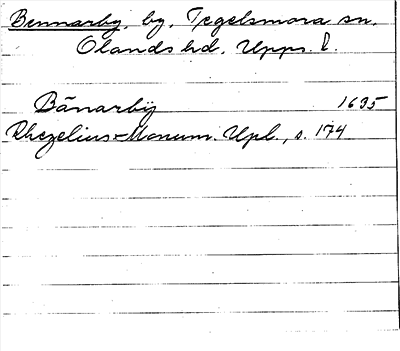 Bennarby, by, Tegelsmora sn,
Olands hd, Upps. l.
Bänarbÿ 1635
Rhezelius Monum. Upl., s. 174